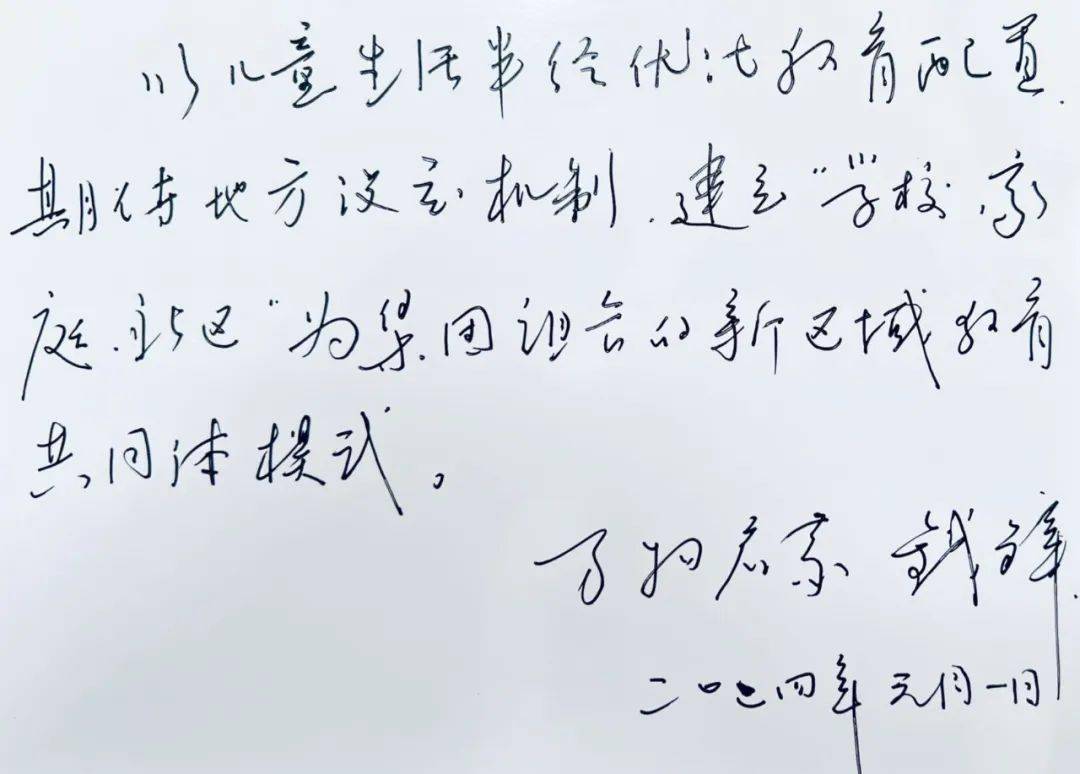 以儿童生活半径优化教育配置.
期待地方设立机制.建立“学校、家
庭、社区”为集团组合的新区域教育
共同体模式。
万物启蒙 钱锋.
二〇二四年元月一日